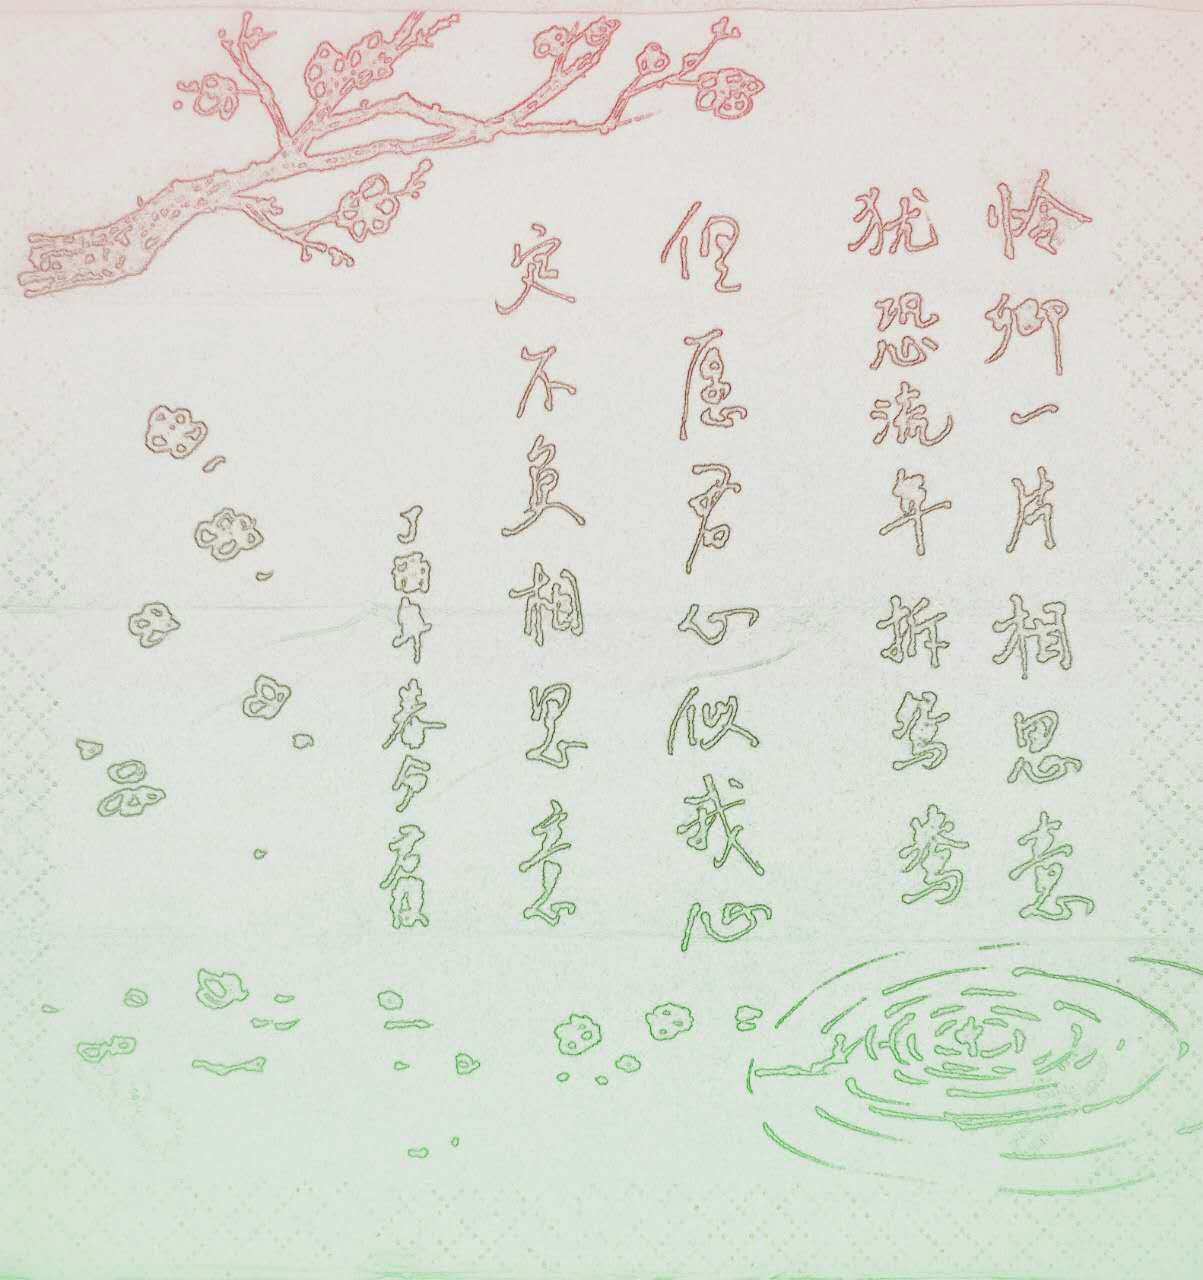 怜卿一片相思意
犹恐流年拆鸳鸯
但愿君心似我心
定不负相思意
丁酉年春夕君